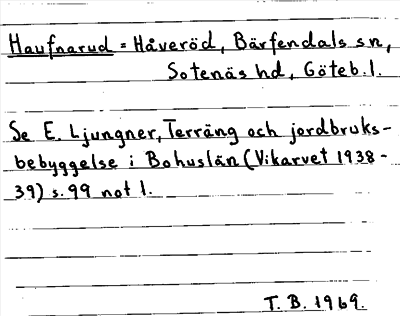 Haufnarud = Håveröd, Bärfendals sn,
Sotenäs hd, Göteb. l.
Se E. Ljungner, Terräng och jordbruks-
bebyggelse i Bohuslän (Vikarvet 1938-
39) s. 99 not 1.
T. B. 1969.